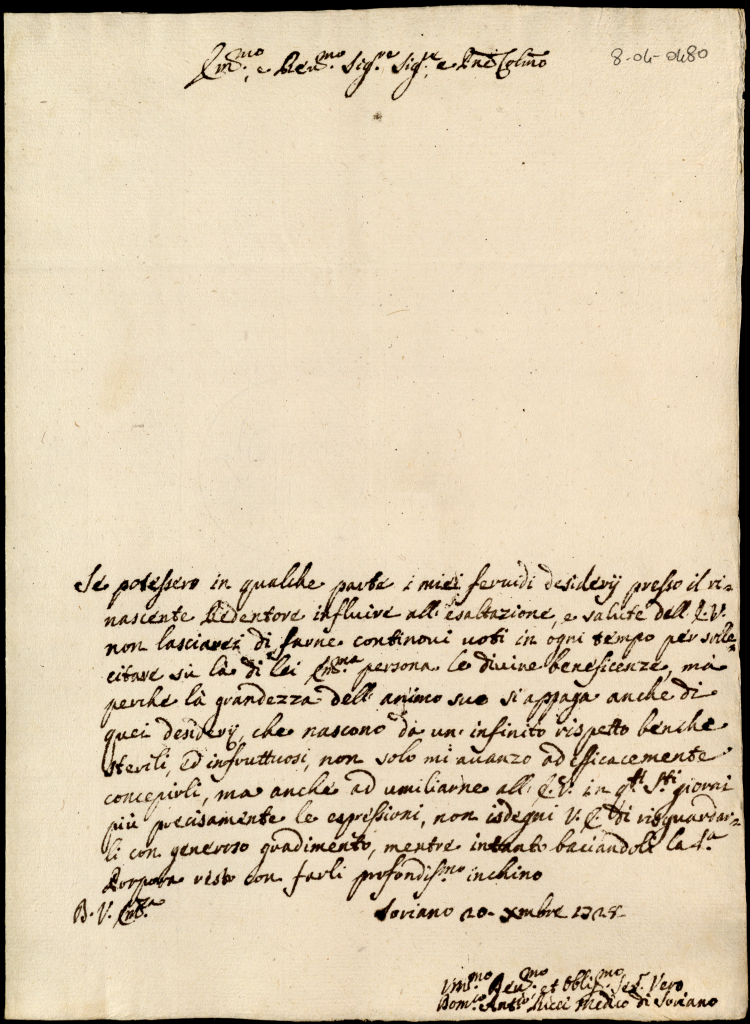 Em.mo e Rev.mo Sig.re Sig.re e Pne Colmo
8-04-0480
Se potessero in qualche parte i miei fervidi desiderij presso il ri-
nascente Redentore influire all' esaltazione, e salute dell' E.V.
non lasciarei di farne continoui voti in ogni tempo per solle-
citare su la di lei Em.ma persona le divine beneficenze, mà
perche là grandezza dell' animo suo si appaga anche di
quei desiderij, che nascono da un' infinito rispetto benche
sterili, ed infruttuosi, non solo mi avanzo ad efficacemente
concepirli, ma anche ad umiliarne all' E.V. in q.ti S.ti giorni
più precisamente le espressioni, non isdegni V.E. di risguardar-
li con generoso gradimento, mentre intanto baciandole la S.a
Porpora resto con farli profondiss.mo inchino
B. V. Em.za Soriano 20. Xmbre 1728
Um.mo Dev.mo et Obblig.mo Ser. Vero
Dom.co Ant.o Ricci Medico di Soriano